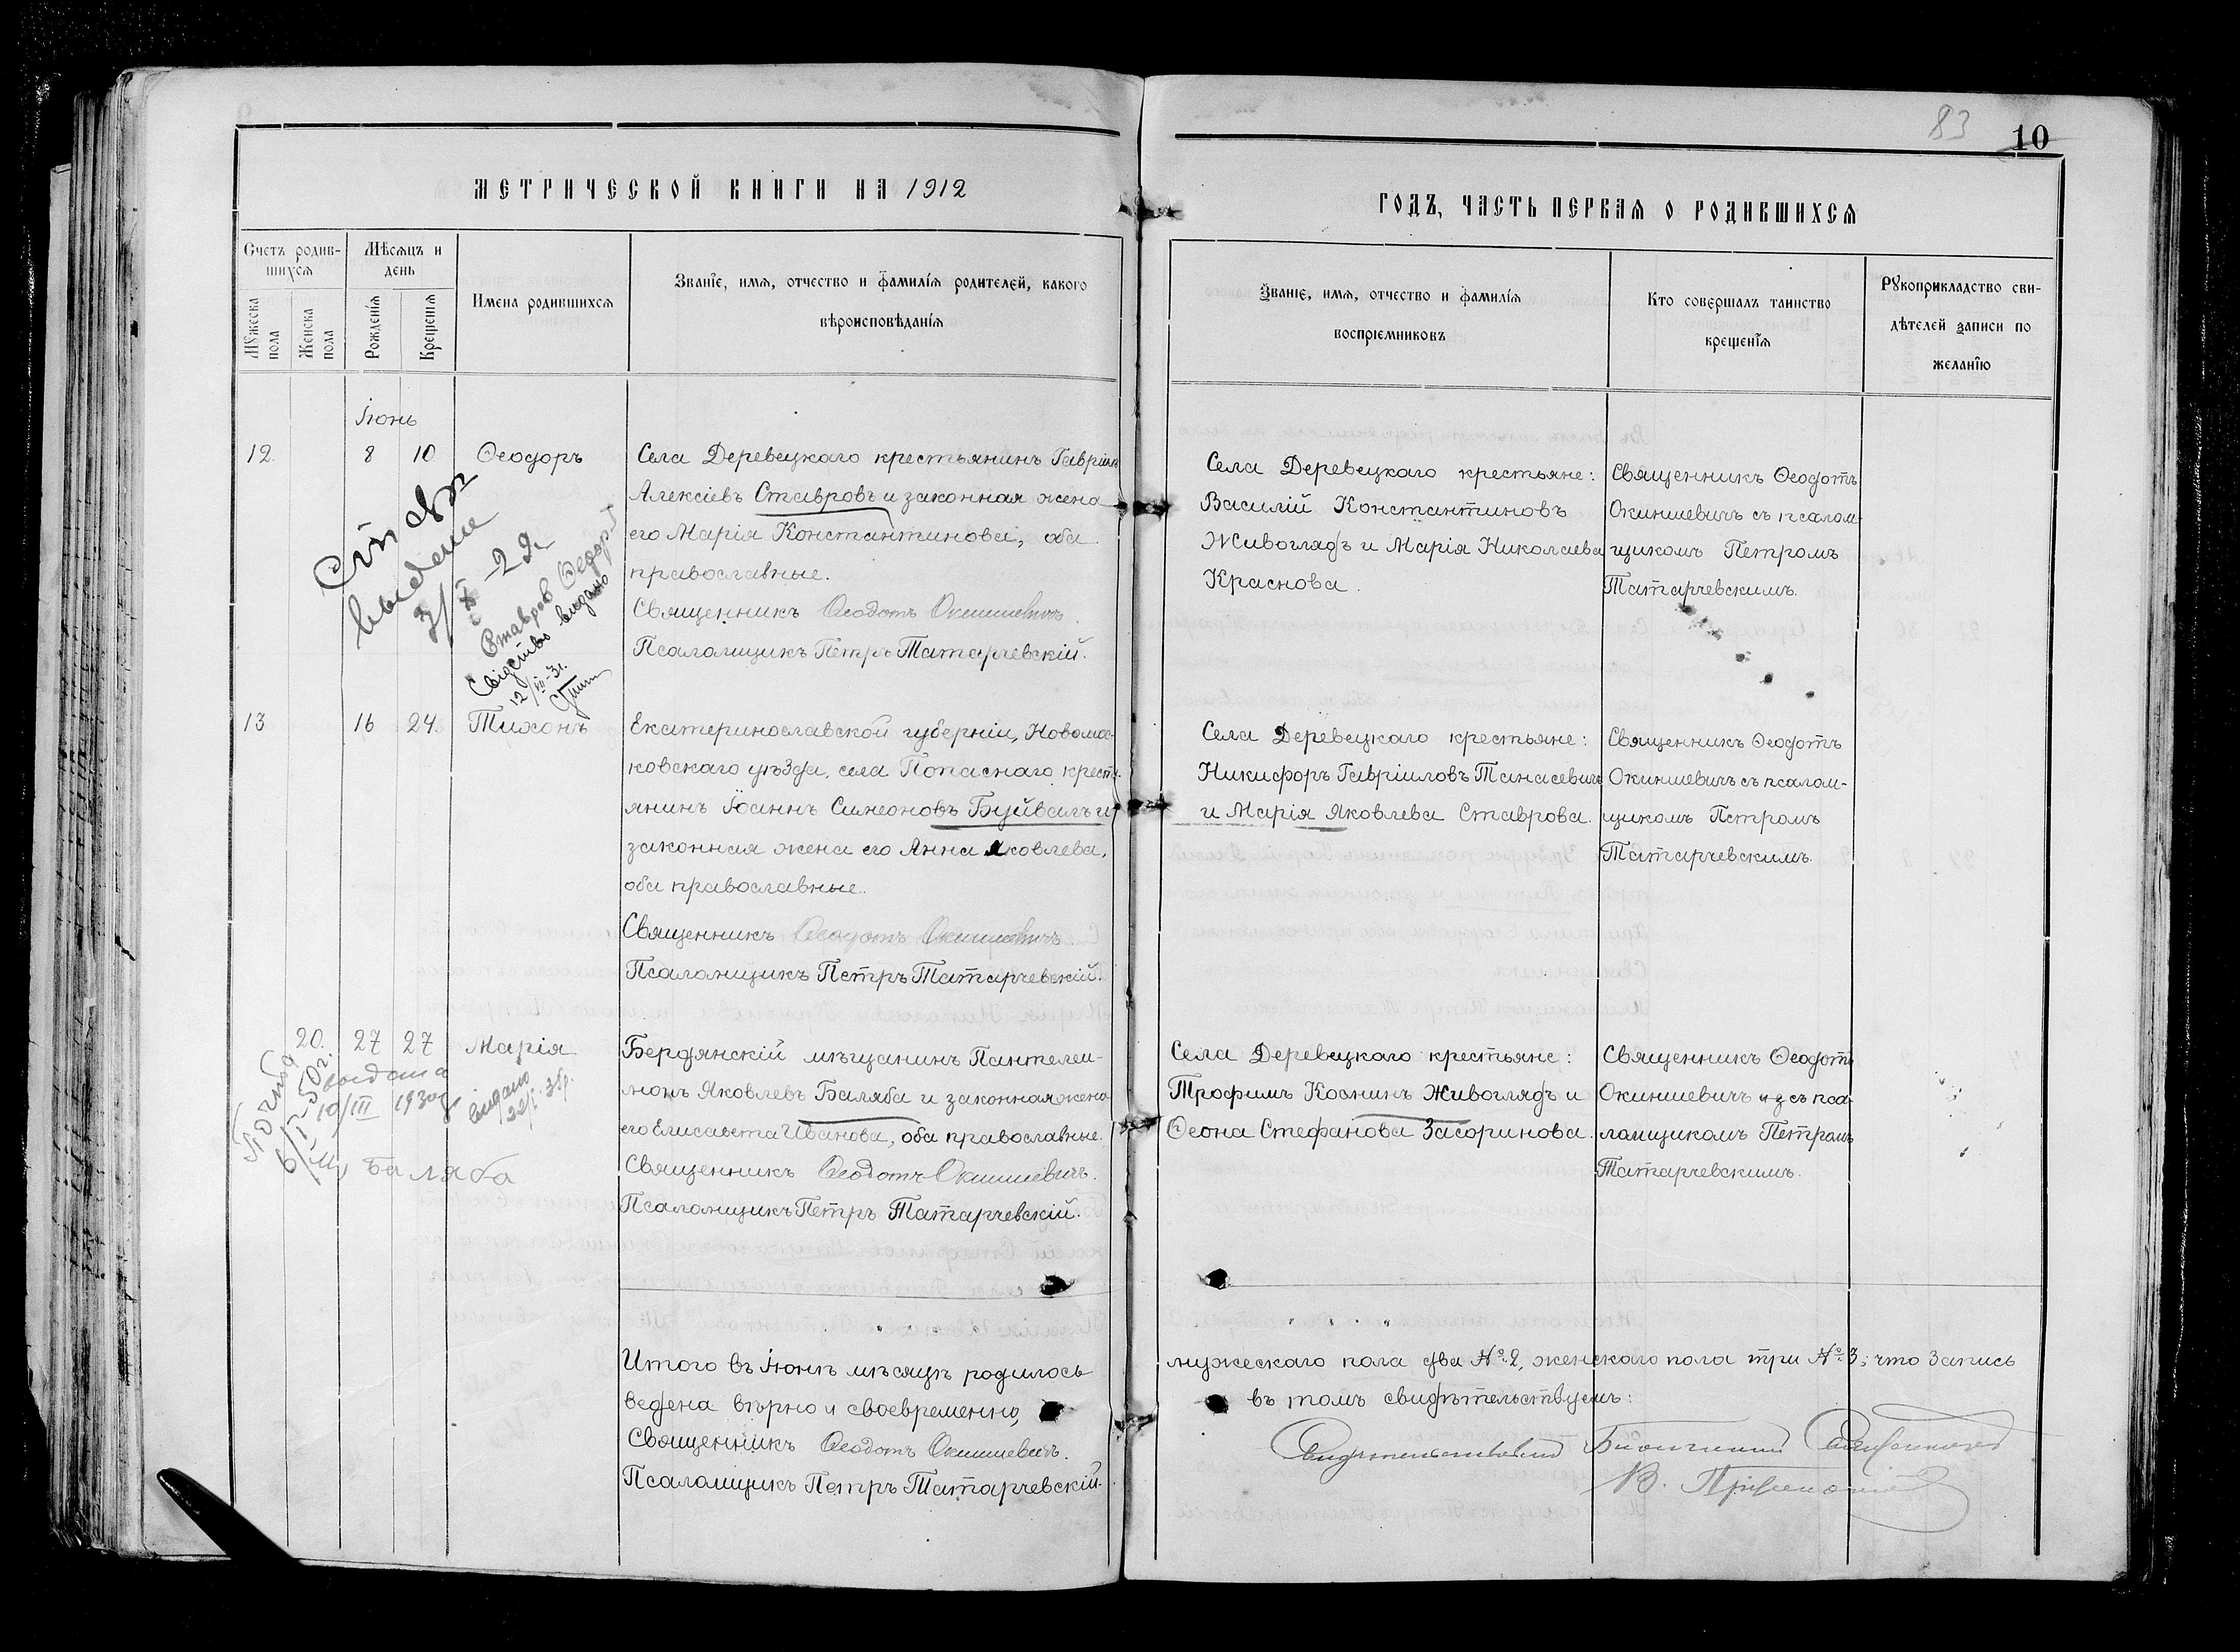 83
10
МЕТРИЧЕСКОЙ КНИГИ НА 1912
ГОДЪ, ЧАСТЬ ПЕРВАЯ О РОДИВШИХСЯ
Счетъ родив-
шихся
Мѣсяцъ и
день
Мужеска
пола
Женска
пола
Рожденія
Крещенія
Имена родившихся
Званіе, имя, отчество и фамилія родителей, какого
вѣроисповѣданія
Званіе, имя, отчество и фамилія
воспріемниковъ
Кто совершалъ таинство
крещенія
Рукоприкладство сви-
дѣтелей записи по
желанію
Іюнь
12. 8 10 Ѳеодоръ
Села Деревецкаго крестьянинъ Гавріилъ
Алексіевъ Ставровъ и законная жена
его Марія Константинова, оба
православные.
Священникъ Ѳеодотъ Окиншевичъ.
Псаломщикъ Петръ Татарчевскій.
Села Деревецкаго крестьяне:
Василій Константиновъ
Живоглядъ и Марія Николаева
Краснова.
Священникъ Ѳеодотъ
Окиншевичъ съ псалом-
щикомъ Петромъ
Татарчевскимъ.
Ставров Федор
Свідство видано
12/VII-31.
13 16 24. Тихонъ
Екатеринославской губерніи, Новомос-
ковскаго уѣзда, села Попаснаго кресть-
янинъ Іоаннъ Симеоновъ Буйвалъ и
законная жена его Анна Яковлева,
оба православные.
Священникъ Ѳеодотъ Окиншевичъ.
Псаломщикъ Петръ Татарчевскій.
Села Деревецкаго крестьяне:
Никифоръ Гавріиловъ Танасевичъ
и Марія Яковлева Ставрова.
Священникъ Ѳеодотъ
Окиншевичъ съ псалом-
щикомъ Петромъ
Татарчевскимъ.
20. 27 27 Марія
Бердянскій мѣщанинъ Пантелеи-
монъ Яковлевъ Баляба и законная жена
его Елисавета Иванова, оба православные.
Священникъ Ѳеодотъ Окиншевичъ.
Псаломщикъ Петръ Татарчевскій.
Села Деревецкаго крестьяне:
Трофимъ Козминъ Живоглядъ и
Ѳеона Стефанова Засоринова.
Священникъ Ѳеодотъ
Окиншевичъ съ пса-
ломщикомъ Петромъ
Татарчевскимъ.
выдана
10/III 1930г
видано
Баляба
Итого въ Іюнѣ мѣсяцѣ родилось
мужескаго пола два № 2, женскаго пола три № 3; что запись
ведена вѣрно и своевременно,
въ томъ свидѣтельствуемъ:
Священникъ Ѳеодотъ Окиншевичъ.
Псаломщикъ Петръ Татарчевскій.